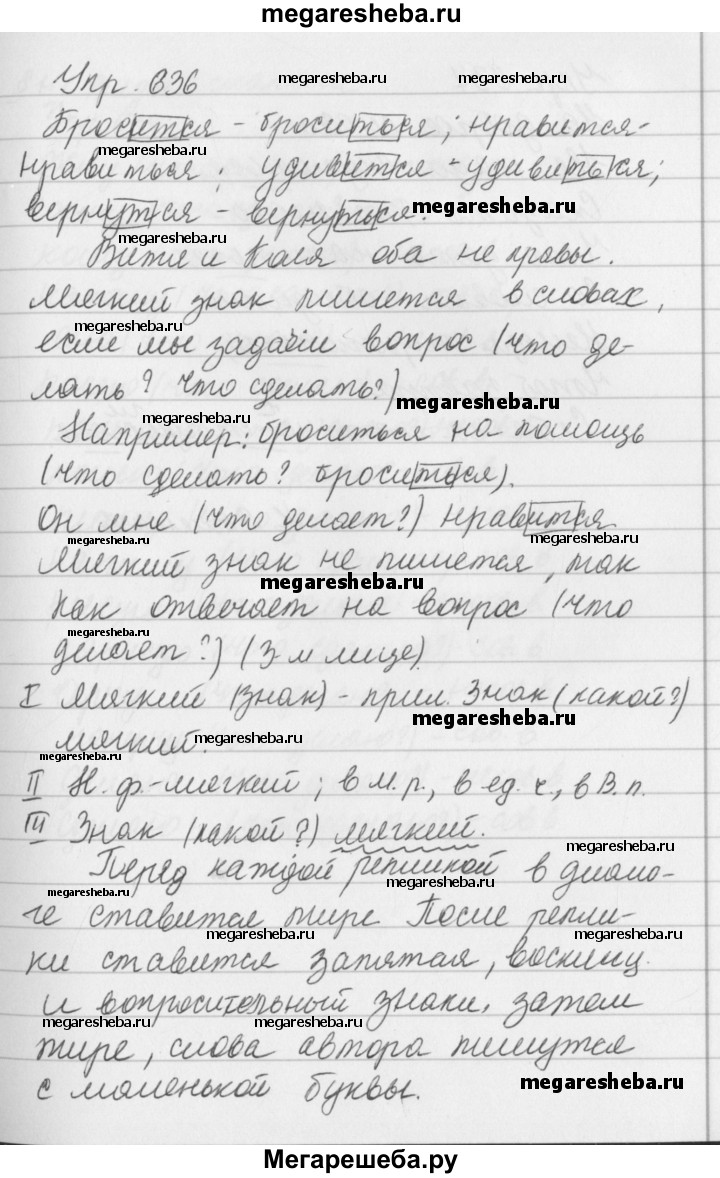 megaresheba.ru
Упр. 636 megaresheba.ru megaresheba.ru
Бросится - броситься; нравится-
megaresheba.ru
нравиться; удивится - удивиться;
вернутся - вернуться. megaresheba.ru
megaresheba.ru
Витя и Коля оба не правы.
Мягкий знак пишется в словах,
megaresheba.ru
если мы задаём вопрос (что де-
лать? что сделать?)
megaresheba.ru
megaresheba.ru
Например: броситься на помощь
(что сделать? броситься).
Он мне (что делает?) нравится
megaresheba.ru megaresheba.ru
Мягкий знак не пишется, так
megaresheba.ru
как отвечает на вопрос (что
megaresheba.ru
делает?) (3-м лице).
I Мягкий (знак) - прил. Знак (какой?)
megaresheba.ru
мягкий. megaresheba.ru
II Н. ф.-мягкий; в м.р., в ед. ч., в В. п.
III Знак (какой?) мягкий.
Перед каждой репликой в диало-
megaresheba.ru megaresheba.ru
ге ставится тире. После репли-
megaresheba.ru megaresheba.ru
ки ставится запятая, восклиц.
и вопросительный знаки, затем
megaresheba.ru megaresheba.ru
тире, слова автора пишутся
с маленькой буквы. megaresheba.ru
Мегарешеба.ру